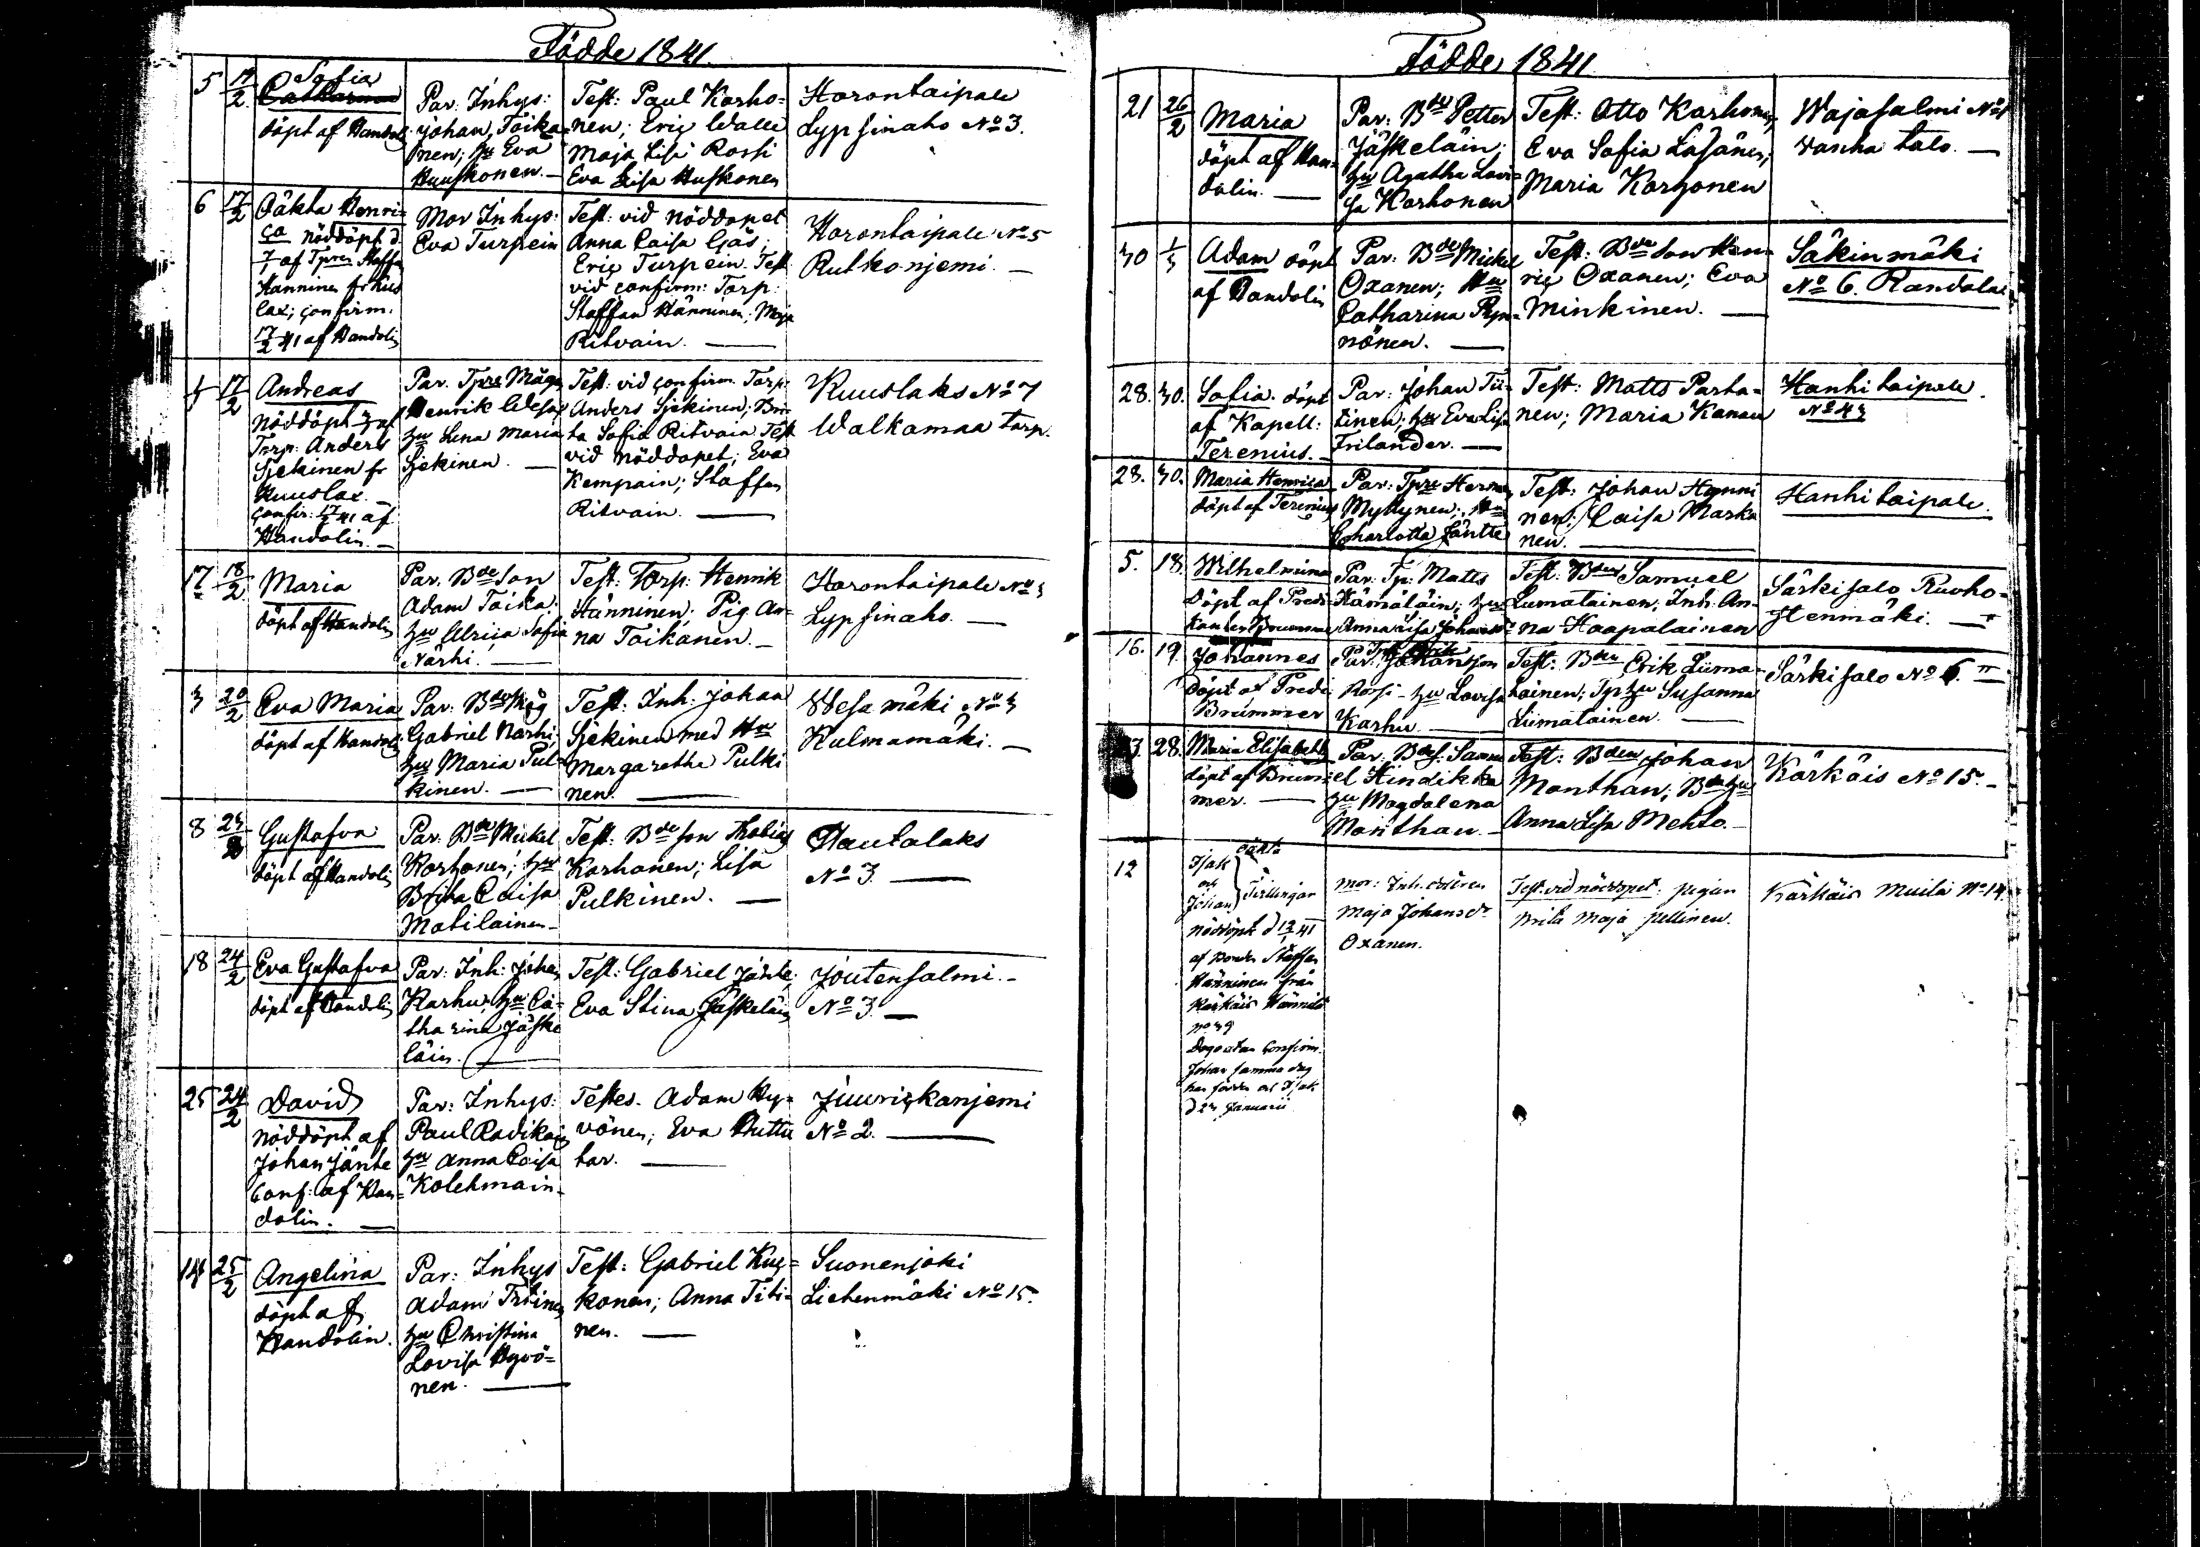 Födde 1841.
5 14/2 Sofia
Catharina
döpt af Handol:
Par: Inhys:
Johan Toika-
nen; hu Eva
Huuskonen. —
Test: Paul Korho-
nen; Eric Walle
Maja Lisa Rossi
Eva Lisa Huskonen
Horontaipale
Lypsinaho No 3.
6 17/2 Oäkta Henri-
ca nöddöpt d.
7 af Tpren Staffa
Hänninen fr Kus
lax; confirm.
17/2 41 af Handolin
Mor Inhys:
Eva Turpein
Test: vid nöddopet
Anna Caisa Gås,
Eric Turpein. Test
vid confirm: Torp:
Staffan Hänninen; Maja
Ritvain. —
Horontaipale No 5
Rutkonjemi. —
17/2 Andreas
nöddöpt af
Torp: Anders
Sjekinen fr
Kuuslax. —
confir: 17/2 41 af
Handolin. —
Par. Tpre Måg
Henrik Wesa
hu Lena Maria
Sjekinen. —
Test: vid confirm. Torp:
Anders Sjekinen; Bri-
ta Sofia Ritvain. Test
vid nöddopet; Eva
Kempain; Staffan
Ritvain. —
Kuuslaks No 7
Walkamaa torp.
17 18/2 Maria
döpt af Handolin
Par. Bdeson
Adam Toika;
hu Ulrica Sofia
Närhi. —
Test: Torp: Henrik
Hänninen; Pig. An-
na Toikanen. —
Horontaipale No 3
Lypsinaho. —
3 20/2 Eva Maria
döpt af Handol
Par: Bde Måg
Gabriel Närhi,
hu Maria Pul-
kinen. —
Test: Inh: Johan
Sjekinen med Hu
Margaretha Pulki
nen. —
Wesamäki No 3
Kulmamäki. —
8 23/2 Gustafva
döpt af Handolin
Par: Bde Mickel
Korhonen; hu
Brita Caisa
Matilainen —
Test: Bdeson Thobias
Korhonen; Lisa
Pulkinen. —
Hautalaks
No 3. —
18 24/2 Eva Gustafva
döpt af Handolin
Par: Inh: Johan
Karhu; hu Ca-
tharina Jäske
läin. —
Test: Gabriel Jänte;
Eva Stina Jäskeläin
Joutensalmi. —
No 3. —
25 24/2 David
nöddöpt af
Johan Jänte
Conf: af Han-
dolin. —
Par: Inhys:
Paul Radikain
hu Anna Caisa
Kolehmain.
Testes. Adam Hy-
vönen; Eva Ruttu
tar. —
Juurikkanjemi
No 2. —
14 25/2 Angelina
döpt af
Handolin.
Par: Inhys
Adam Tritinen
hu Christina
Lovisa Hyvö-
nen. —
Test: Gabriel Kuk-
konen; Anna Titi-
nen. —
Suonenjoki
Lietenmäki No 15.
Födde 1841
21 26/2 Maria
döpt af Han-
dolin. —
Par: Bde Petter
Jäskeläin;
hu Agatha Lovi-
sa Korhonen
Test: Otto Karhonen,
Eva Sofia Lasänen,
Maria Korhonen
Wajasalmi No 1
Wanha talo. —
30 1/3 Adam döpt
af Handolin
Par: Bde Mickel
Oxanen; Hu
Catharina Ryn-
nönen. —
Test: Bdeson Hen-
ric Oxanen; Eva
Minkinen. —
Säkinmäki
No 6. Randala
28. 30. Sofia. döpt
af Kapell:
Terenius. —
Par: Johan Tii-
tinen; hu Eva Lisa
Frilander. —
Test: Matts Parta-
nen; Maria Kanan
Hanhitaipale.
No 43
28. 30. Maria Henrica
döpt af Terenius
Par: Tpre Herman
Mykkynen; Hu
Charlotta Jäntte
Test: Johan Hynni
nen; Caisa Marka
nen. —
Hanhitaipale.
5. 18. Wilhelmina
Döpt af Predi-
kanten Brummer
Par: Tp: Matts
Hämäläin; hu
Anna Lisa Johansdr
Test: Bden Samuel
Lumatainen; Inh. An-
na Haapalainen
Särkisalo Ruoho-
stenmäki. —
16. 19. Johannes
Döpt af Predi
Brummer
Par: Johansson
Rossi — hu Lovisa
Karhu —
Test: Bden Erik Liima-
tainen; Tp hu Susanna
Liimatainen. —
Särkisalo No 6.
28. Maria Elisabeth
döpt af Brum-
mer. —
Par: Bdes: Samu
el Hindikka
hu Magdalena
Manthau. —
Test: Bden Johan
Manthau; Bde hu
Anna Lisa Mehto. —
Kärkäis No 15. —
12 Isak
och
Johan
oäkta
Tvillingar
nöddöpt d 13/1 41
af Bonden Staffan
Hänninen från
Kärkäis Hännilä
No 39
Dogo utan Confirm.
Johan samma dag
han föddes och Isak
d 23 Januarii
mor: Inh. enkan
Maja Johansdr
Oxanen.
Test. vid nöddopet: pigan
Brita Maja Pellinen.
Kärkäis Muila No 14.